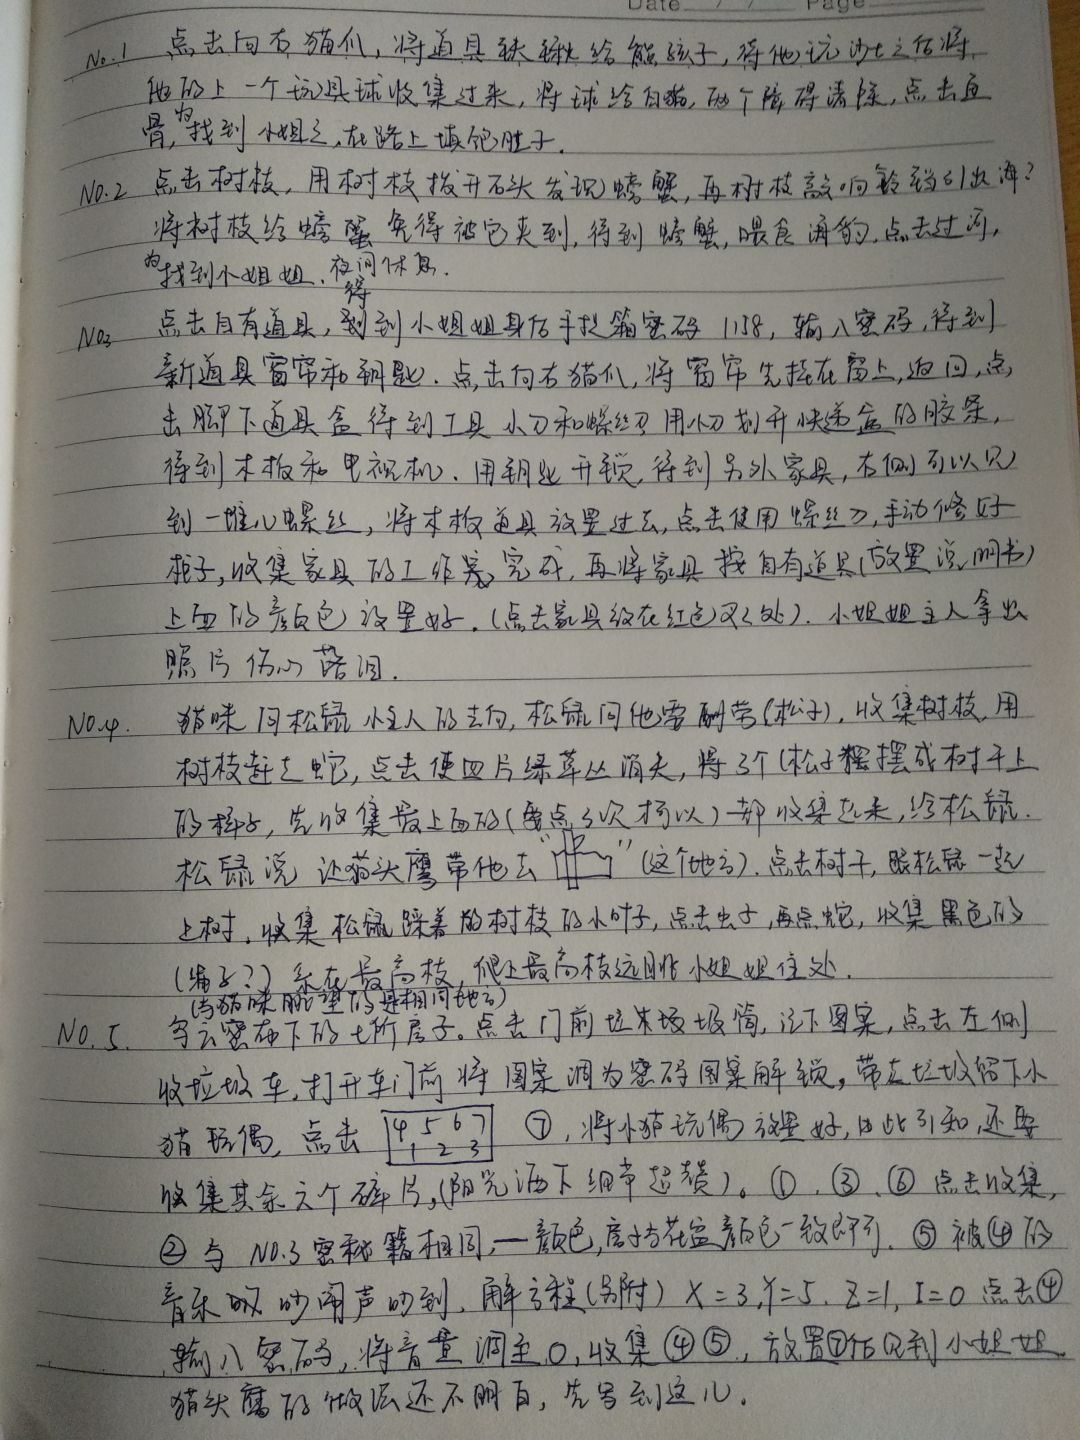 Date / / Page
No.1 点击向右猫爪，将道具铁锹给熊孩子，待他玩沙土之后将
他的上一个玩具球收集过来，将球给白猫，两个障碍清除，点击鱼
骨，为找到小姐姐，在路上填饱肚子．
NO.2 点击树枝，用树枝拨开石头发现螃蟹，再树枝敲响铃铛引出海？
将树枝给螃蟹免得被它夹到，得到螃蟹，喂食海豹．点击过河，
为找到小姐姐．夜间休息．
NO3 点击自有道具，得到小姐姐身后手提箱密码1158，输入密码，得到
新道具窗帘和钥匙．点击向右猫爪，将窗帘先挂在窗上，返回，点
击脚下道具盒得到工具小刀和螺丝刀用小刀划开快递盒的胶条，
得到木板和电视机．用钥匙开锁，得到另外家具，右侧可以见
到一堆儿螺丝，将木板道具放置过去，点击使用螺丝刀，手动修好
柜子，收集家具的工作完成，再将家具按自有道具(放置说明书)
上面的颜色放置好．(点击家具放在红色叉叉处)．小姐姐主人拿出
照片伤心落泪．
NO.4. 猫咪问松鼠小主人的去向，松鼠问他需酬劳(松子)，收集树枝，用
树枝赶走蛇，点击使四片绿草丛消失，将3个(松子摆成树干上
的样子，先收集最上面的(要点3次场以)一都收集起来，给松鼠．
松鼠说让猫头鹰带他去“ ”(这个地方)．点击树子，跟松鼠一起
上树．收集松鼠踩着的树枝的小叶子，点击虫子，再点蛇，收集黑色的
(绳子？)系在最高枝，爬上最高枝远眺小姐姐住处．
(与猫咪眺望的是相同地方)
NO.5. 乌云密布下的七所房子。点击门前垃圾圾筒，记下图案，点击左侧
收垃圾车．打开车门前将图案调为密码图案解锁，带走垃圾留下小
猫玩偶，点击 4 5 6 7 ⑦，将小猫玩偶放置好，由此引知，还要
1 2 3
收集其余六个碎片，(阳光洒下细节超赞)。①．③．⑥点击收集，
②与NO.3密秘籍相同，一颜色，房子与花盆颜色一致即可．⑤被④的
音乐吵闹声吵到．解方程(另附) X=3，Y=5．Z=1，I=0 点击④
输入密码，将音量调至0，收集④⑤，放置⑦后见到小姐姐．
猫头鹰的做法还不明白，先写到这儿．